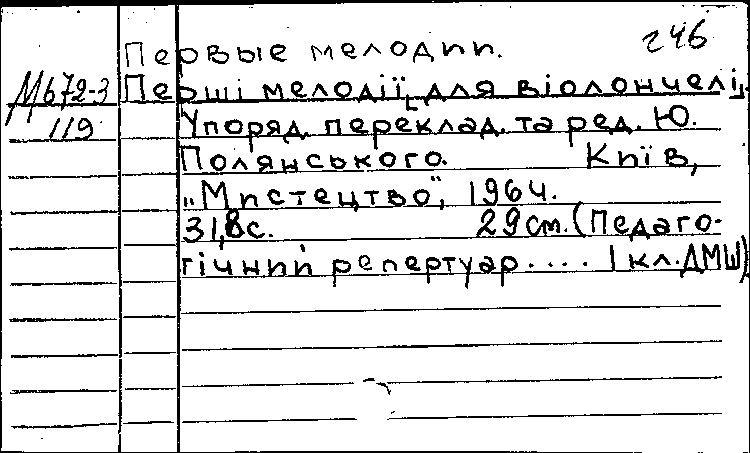 г46
Первые мелодии.
М672-3 Перші мелодії [для віолончелі].
119 Упоряд. переклад. та ред. Ю.
Полянського. Київ,
„Мистецтво", 1964.
31,8с. 29см. (Педаго-
гічний репертуар.... 1 кл. ДМШ)